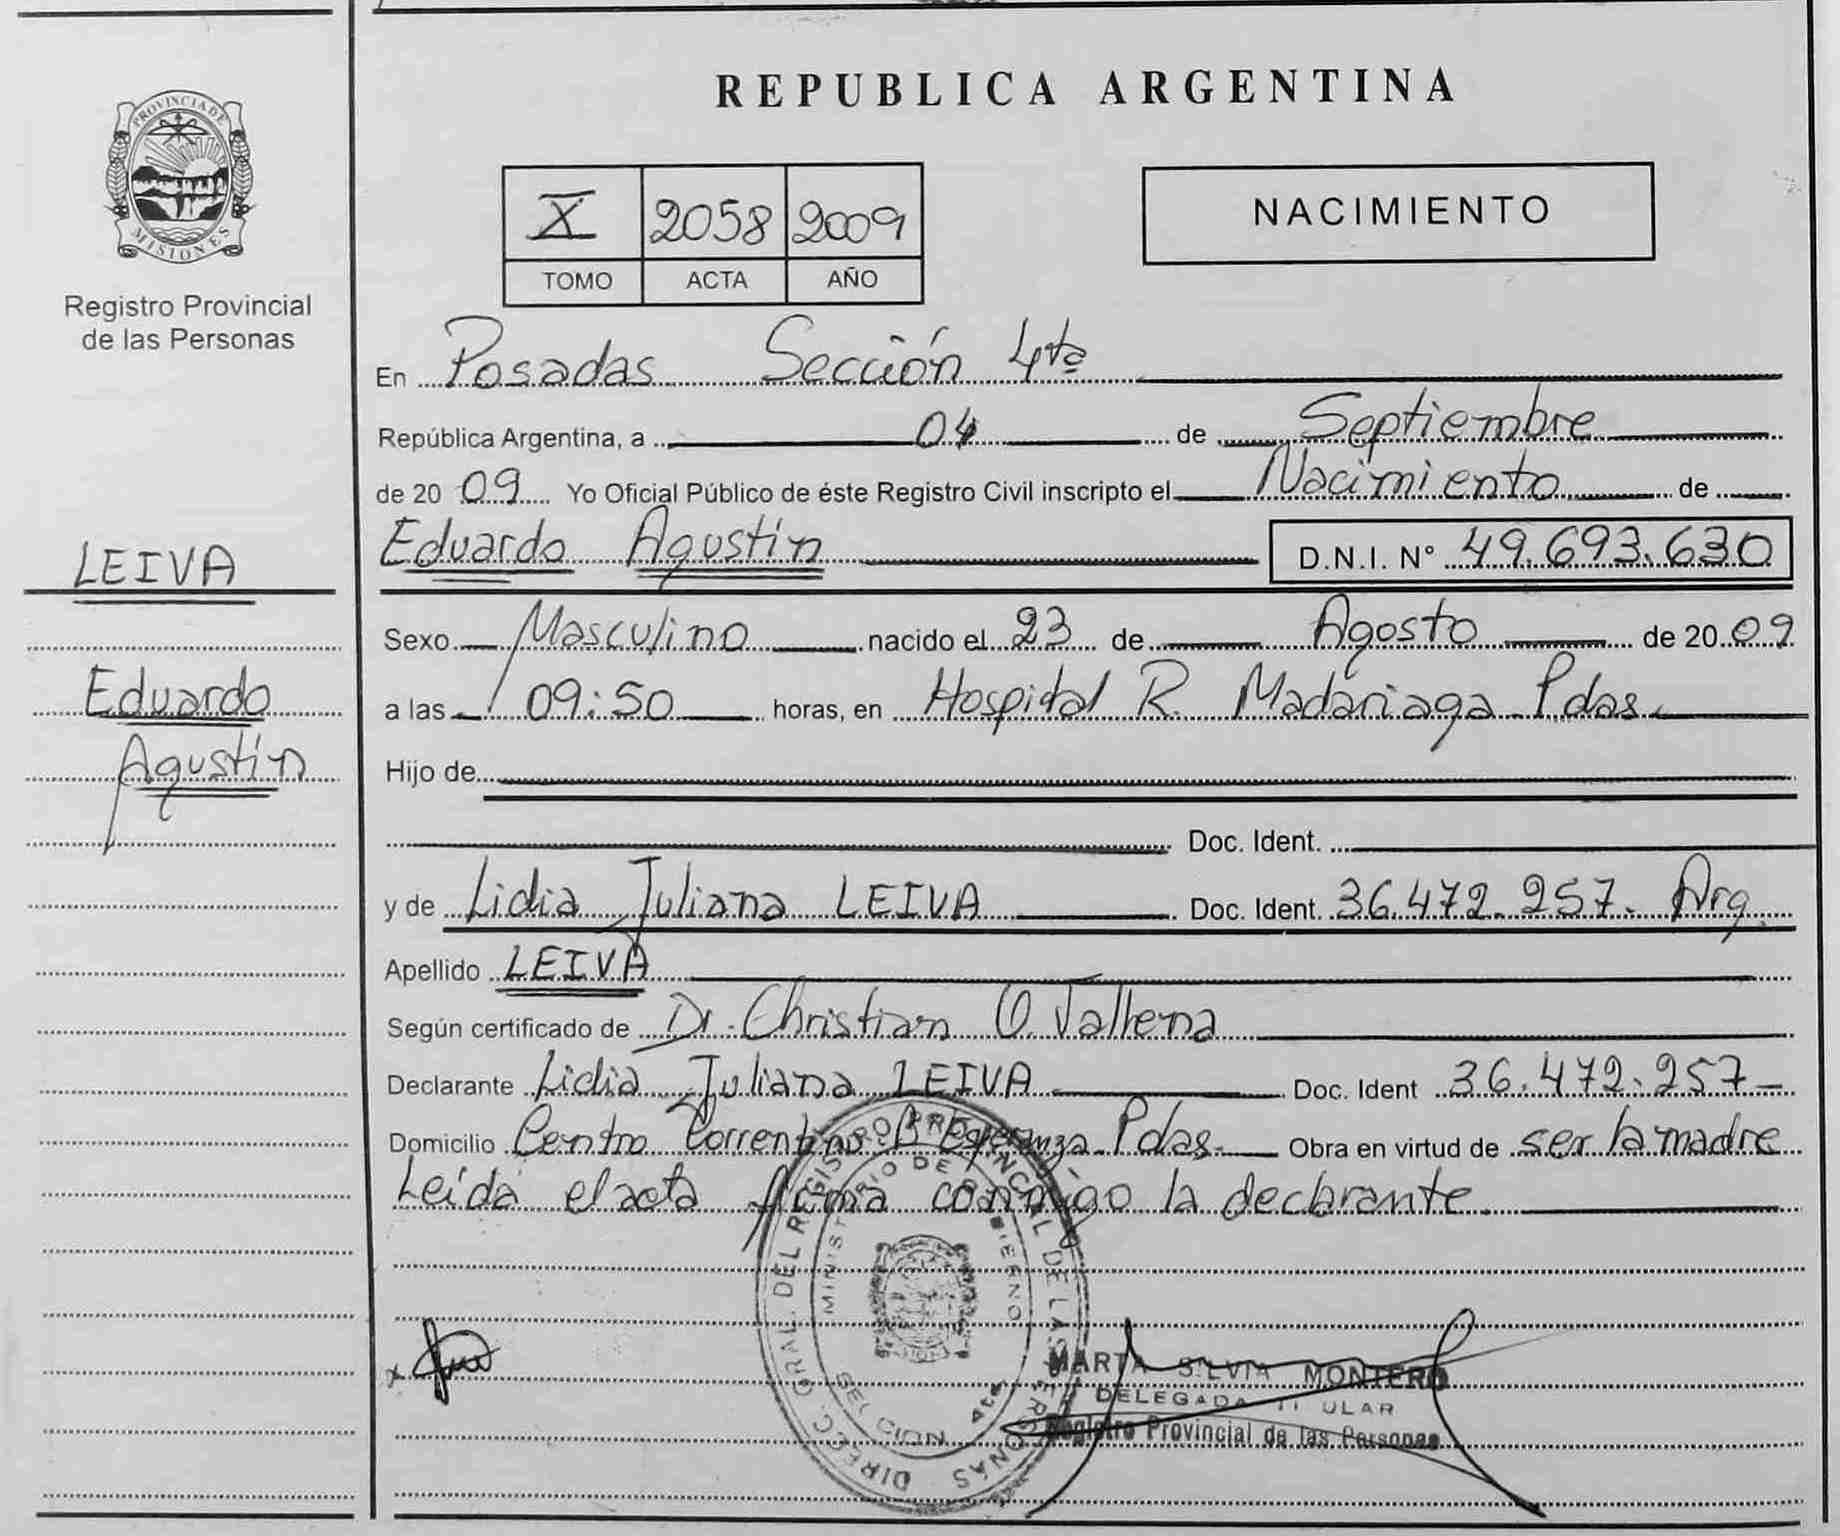 PROVINCIA DE
MISIONES
Registro Provincial
de las Personas
LEIVA
Eduardo
Agustín
REPUBLICA ARGENTINA
X 2058 2009
TOMO ACTA AÑO
NACIMIENTO
En Posadas Sección 4ta
República Argentina, a 04 de Septiembre
de 20 09 Yo Oficial Público de éste Registro Civil inscripto el Nacimiento de
Eduardo Agustín D.N.I. N° 49.693.630
Sexo Masculino nacido el 23 de Agosto de 20 09
a las 09:50 horas, en Hospital R. Madariaga Pdas.
Hijo de
Doc. Ident.
y de Lidia Juliana LEIVA Doc. Ident. 36.472.257. Arg.
Apellido LEIVA
Según certificado de Dr. Christian O.
Declarante Lidia Juliana LEIVA Doc. Ident 36.472.257
Domicilio Centro Correntino B Esperanza Pdas. Obra en virtud de ser la madre
Leída el acta firma conmigo la declarante.
DIRECC. GRAL. DEL REGISTRO PROVINCIAL DE LAS PERSONAS
MINISTERIO DE GOBIERNO
SECCION 4ta
MARTA SILVIA MONTERO
DELEGADA TITULAR
Registro Provincial de las Personas